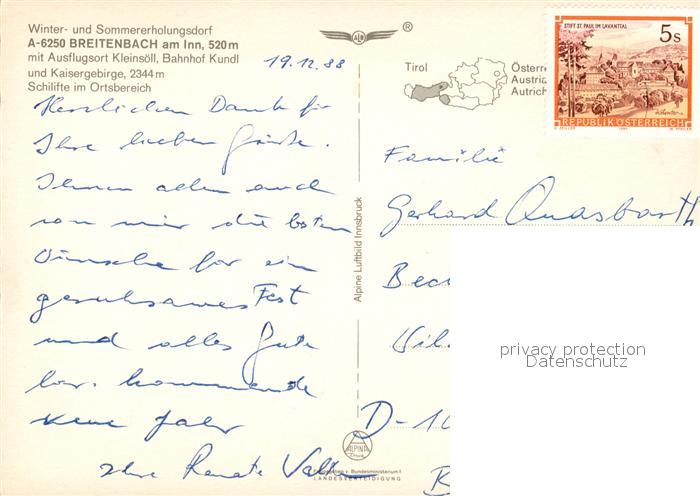 Winter- und Sommererholungsdorf
A-6250 BREITENBACH am Inn, 520 m
mit Ausflugsort Kleinsöll, Bahnhof Kundl
und Kaisergebirge, 2344 m
Schilifte im Ortsbereich
19.12.88
Herzlichen Dank für
Ihre lieben Grüße.
Ihnen allen auch
von mir die besten
Wünsche für ein
geruhsames Fest
und alles Gute
kommende
neue Jahr
Ihre Renate
ALD
®
Tirol
Österre
Austria
Autrich
STIFT ST. PAUL IM LAVANTTAL
5s
REPUBLIK ÖSTERREICH
Alpine Luftbild Innsbruck
Familie
Gerhard Quasbarth
Bec
Wil
D-10
B
privacy protection
Datenschutz
ALPINA
v. Bundesministerium f.
LANDESVERTEIDIGUNG